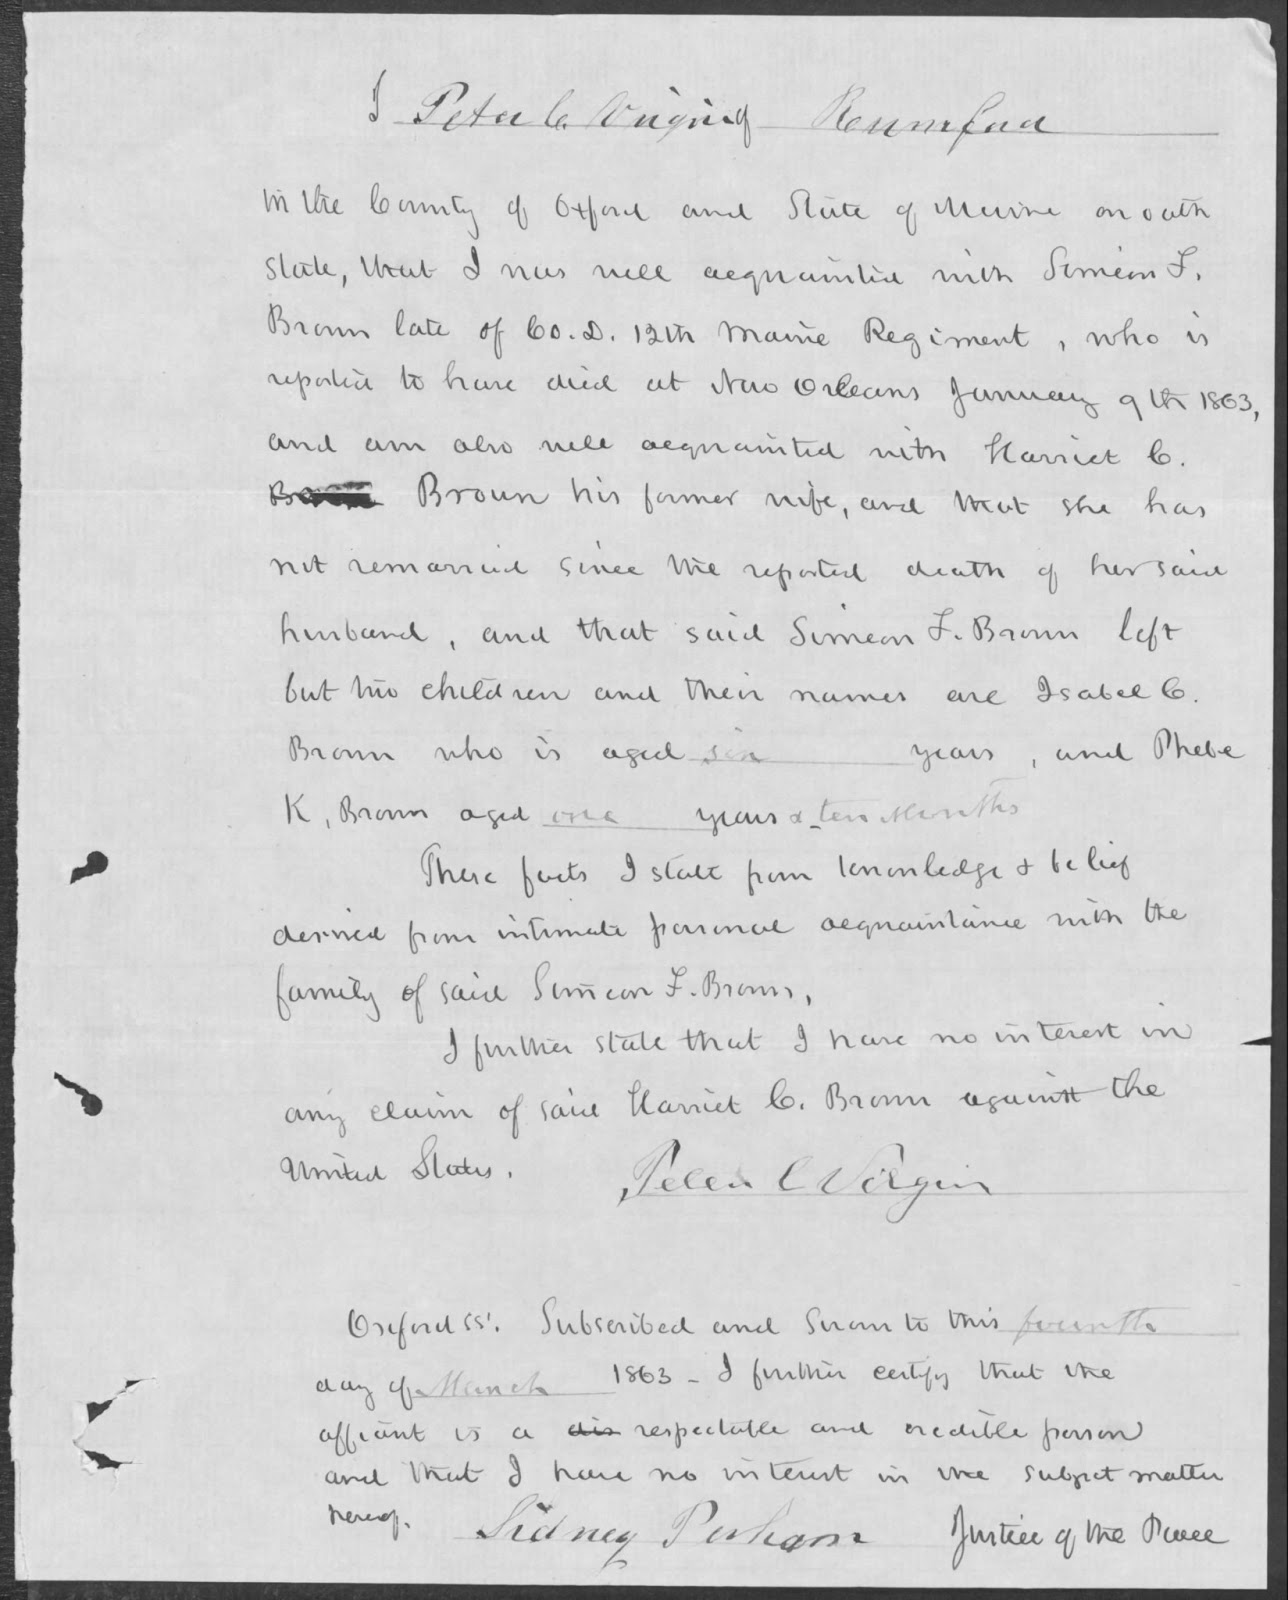 I Peter C. Virgin of Rumford
in the County of Oxford and State of Maine on oath
state, that I was well acquainted with Simeon F.
Brown late of Co. D. 12th Maine Regiment, who is
reported to have died at New Orleans January 9th 1863,
and am also well acquainted with Harriet C.
Brown his former wife, and that she has
not remarried since the reported death of her said
husband, and that said Simeon F. Brown left
but two children and their names are Isabel C.
Brown who is aged six years, and Phebe
K. Brown aged one years & ten Months
These facts I state from knowledge & belief
derived from intimate personal acquaintance with the
family of said Simeon F. Brown,
I further state that I have no interest in
any claim of said Harriet C. Brown against the
United States.
Peter C Virgin
Oxford ss'. Subscribed and Sworn to this fourth
day of March 1863 - I further certify that the
affiant is a dis respectable and credible person
and that I have no interest in the subject matter
hereof.
Sidney Perham Justice of the Peace